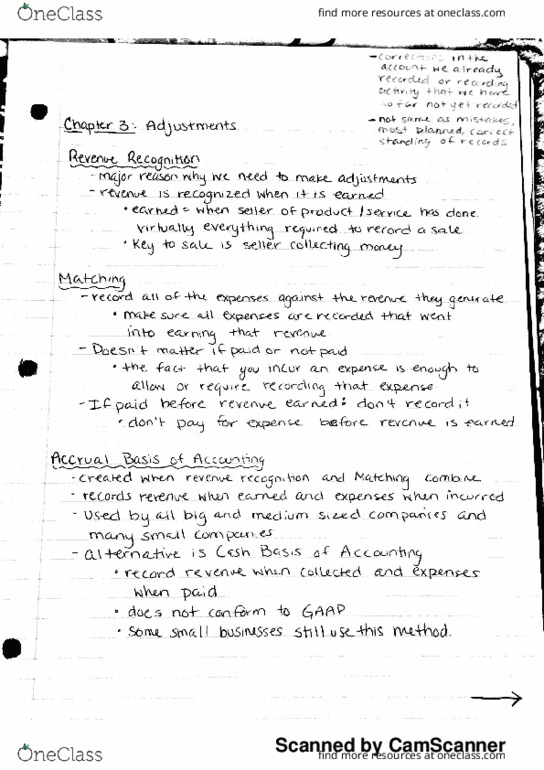 OneClass
find more resources at oneclass.com
- corrections in the
account we already
recorded or recording
activity that we have
so far not yet recorded
- not same as mistakes,
most planned correct
standing of records
Chapter 3: Adjustments
Revenue Recognition
- major reason why we need to make adjustments
- revenue is recognized when it is earned
• earned = when seller of product/service has done
virtually everything required to record a sale
• Key to sale is seller collecting money
Matching
- record all of the expenses against the revenue they generate
• make sure all expenses are recorded that went
into earning that revenue
- Doesn't matter if paid or not paid
• the fact that you incur an expense is enough to
allow or require recording that expense
- If paid before revenue earned: don't record it
• don't pay for expense before revenue is earned
Accrual Basis of Accounting
- created when revenue recognition and Matching combine
- records revenue when earned and expenses when incurred
- Used by all big and medium sized companies and
many small companies
- alternative is Cash Basis of Accounting
• record revenue when collected and expenses
when paid
• does not conform to GAAP
• Some small businesses still use this method.
Scanned by CamScanner
OneClass
find more resources at oneclass.com